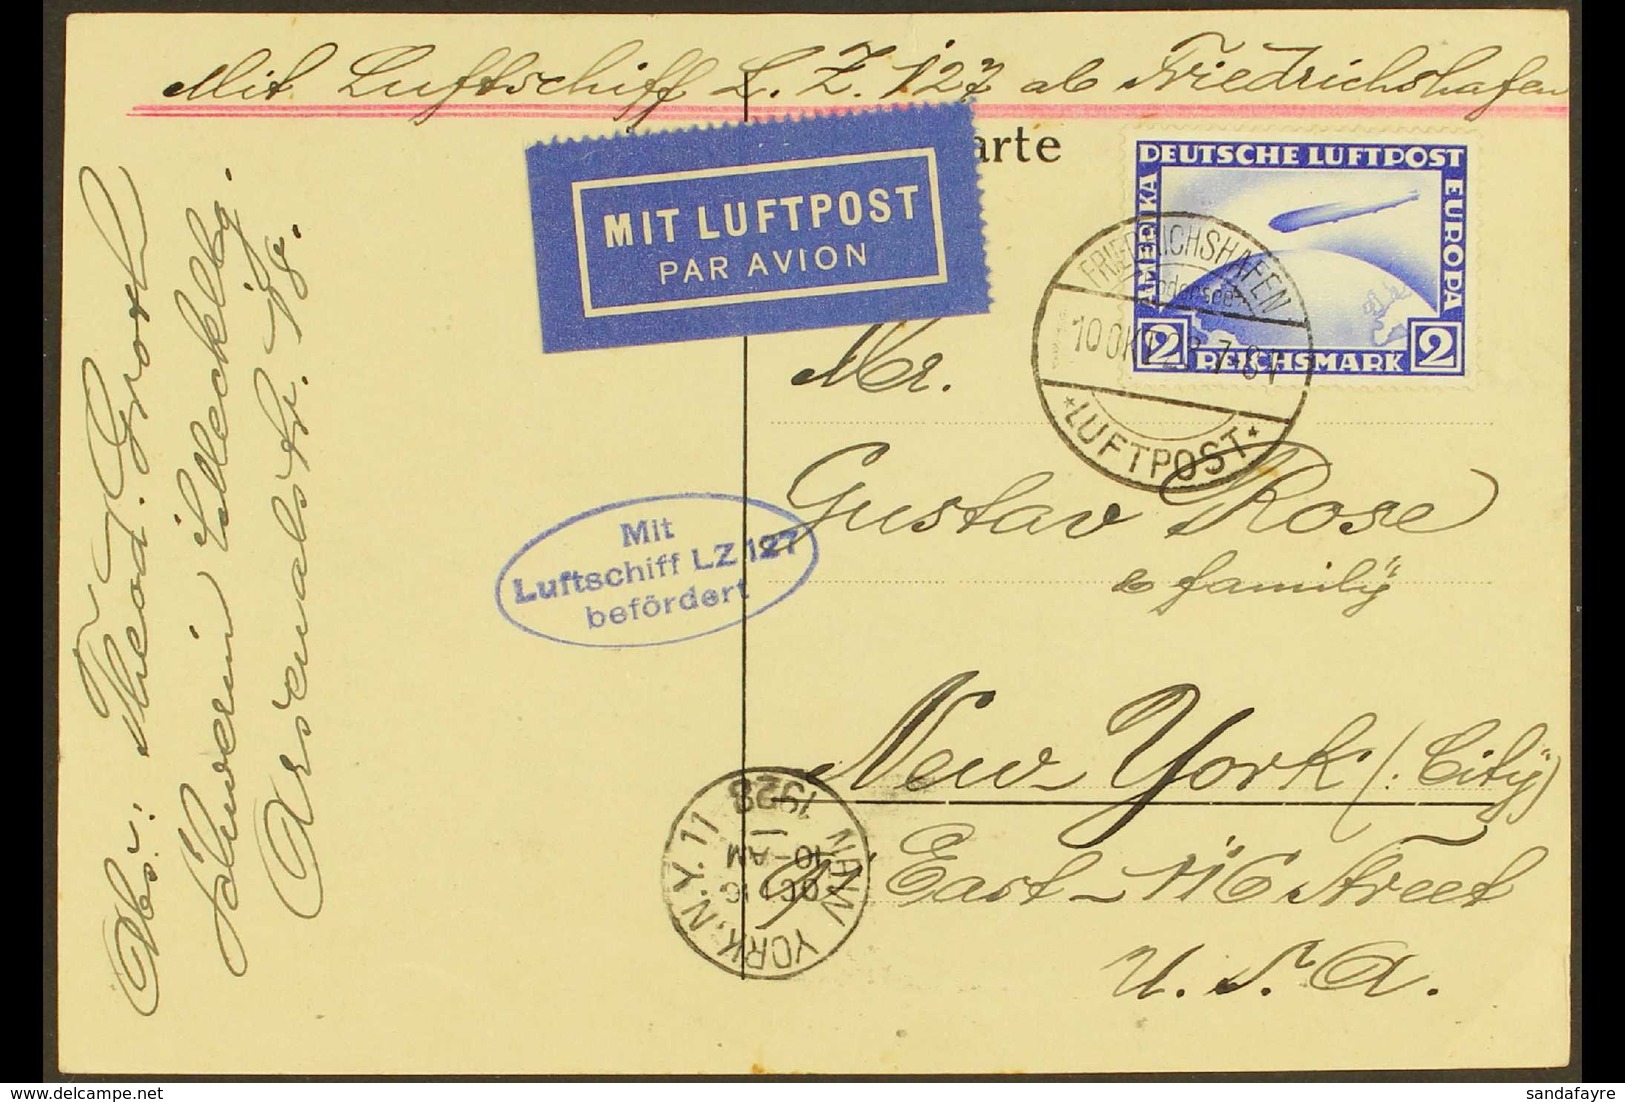 Mit Luftschiff L. Z. 127 ab Friedrichshafen
arte
MIT LUFTPOST
PAR AVION
DEUTSCHE LUFTPOST
AMERIKA
EUROPA
2 REICHSMARK 2
FRIEDRICHSHAFEN
10 OKT 28 7-8
* LUFTPOST *
Mr.
Gustav Rose
& family
New York (: City)
East
Street
U. S. A.
Mit
Luftschiff LZ 127
befördert
NEW YORK, N.Y. 11
OCT 16
10-AM
1928
Abs.: Theod. Grosch
Schwerin Mecklbg.
Arsenalstr. 18.
sandafayre